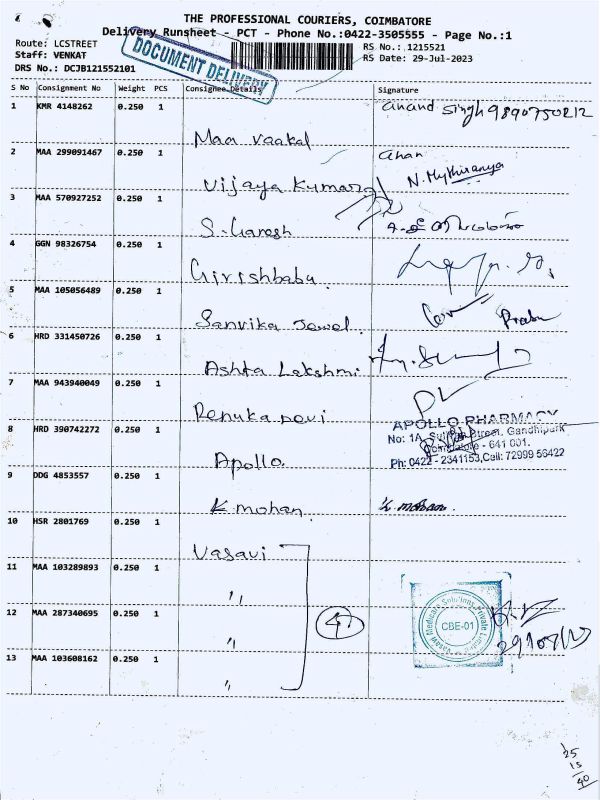 THE PROFESSIONAL COURIERS, COIMBATORE
Delivery Runsheet - PCT - Phone No.:0422-3505555 - Page No.:1
Route: LCSTREET
Staff: VENKAT
DRS No.: DCJB121552101
DOCUMENT DELIVERY
RS No.: 1215521
RS Date: 29-Jul-2023
S No Consignment No Weight PCS Consignee Details Signature
1 KMR 4148262 0.250 1 Maa vaakal anand singh 9890750212
2 MAA 299091467 0.250 1 Vijaya Kumar N. Mythiranya
3 MAA 570927252 0.250 1 S. Ganesh
4 GGN 98326754 0.250 1 Girishbabu
5 MAA 105056489 0.250 1 Sanvika Jewel Prabu
6 HRD 331450726 0.250 1 Ashta Lakshmi
7 MAA 943940049 0.250 1 Renuka Devi
8 HRD 390742272 0.250 1 Apollo
APOLLO PHARMACY
No: 1A, Street, Gandhipark
Coimbatore - 641 001.
Ph: 0422 - 2341153, Cell: 72999 56422
9 DDG 4853557 0.250 1 K. mohan K. mohan
10 HSR 2801769 0.250 1 Vasavi
11 MAA 103289893 0.250 1 "
12 MAA 287340695 0.250 1 "
13 MAA 103608162 0.250 1 "
4
CBE-01
25
15
40